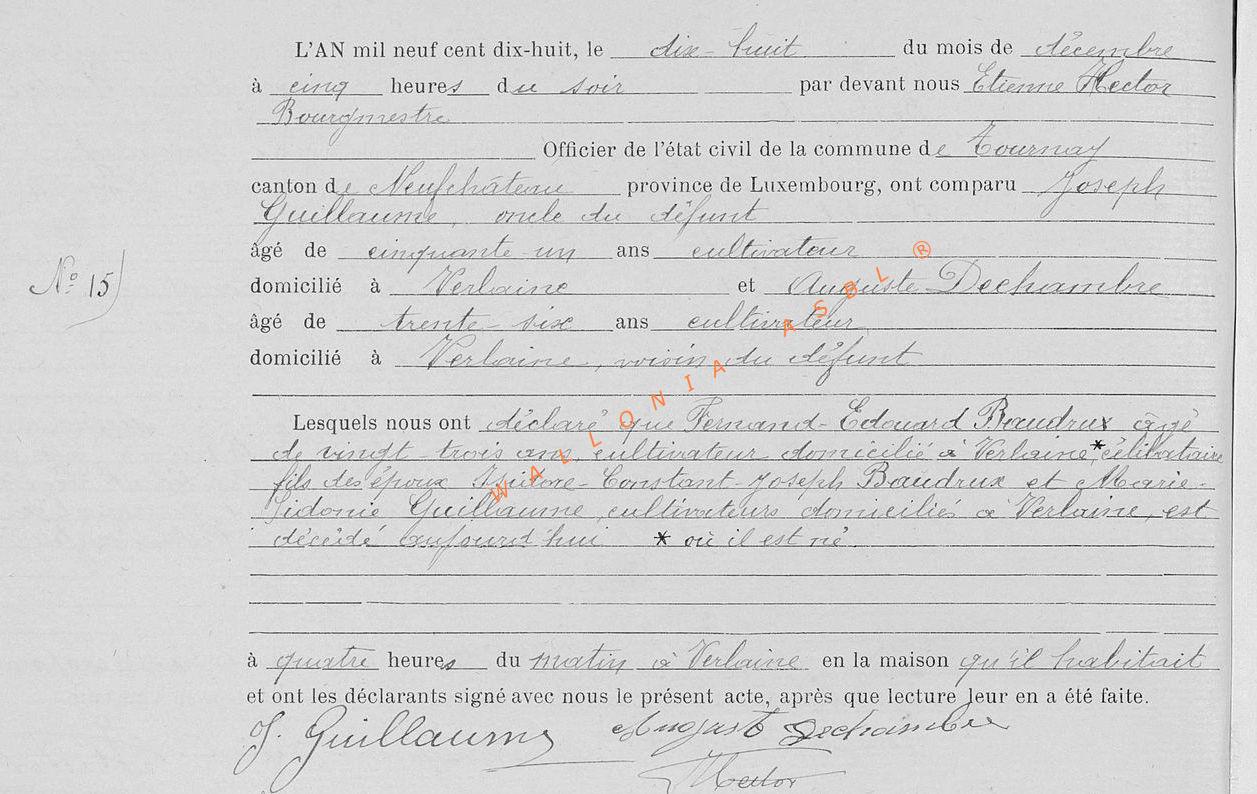 L'AN mil neuf cent dix-huit, le dix-huit du mois de décembre
à cinq heures du soir par devant nous Etienne Hector
Bourgmestre
Officier de l'état civil de la commune de Tournay
canton de Neufchâteau province de Luxembourg, ont comparu Joseph
Guillaume, oncle du défunt
âgé de cinquante-un ans cultivateur
N° 15
domicilié à Verlaine et Auguste Dechambre
âgé de trente-six ans cultivateur
domicilié à Verlaine, voisin du défunt
Lesquels nous ont déclaré que Fernand-Edouard Baudrux âgé
de vingt-trois ans, cultivateur domicilié à Verlaine * célibataire
fils des époux Isidore-Constant-Joseph Baudrux et Marie-
Sidonie Guillaume, cultivateurs domiciliés à Verlaine, est
décédé aujourd'hui * où il est né.
à quatre heures du matin à Verlaine en la maison qu'il habitait
et ont les déclarants signé avec nous le présent acte, après que lecture leur en a été faite.
J. Guillaume Auguste Dechambre
Hector
WALLONIA ASBL ®